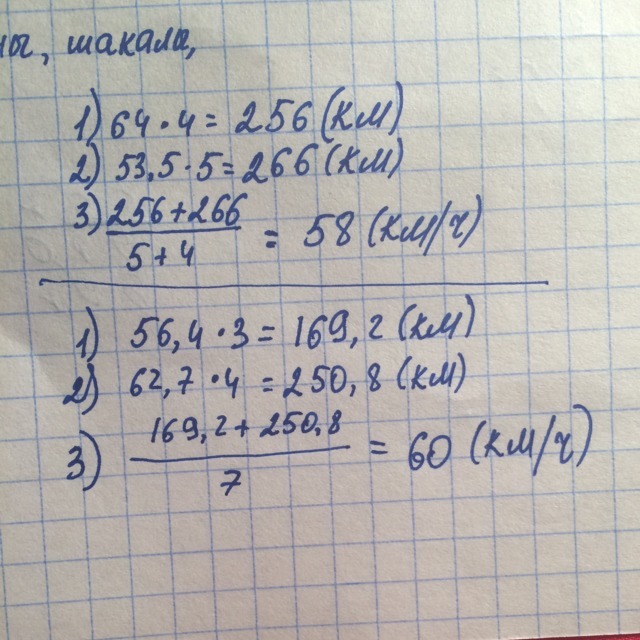 ны, шакалы,
1) 64 · 4 = 256 (км)
2) 53,5 · 5 = 266 (км)
3) 256+266 / 5+4 = 58 (км/ч)
1) 56,4 · 3 = 169,2 (км)
2) 62,7 · 4 = 250,8 (км)
3) 169,2 + 250,8 / 7 = 60 (км/ч)